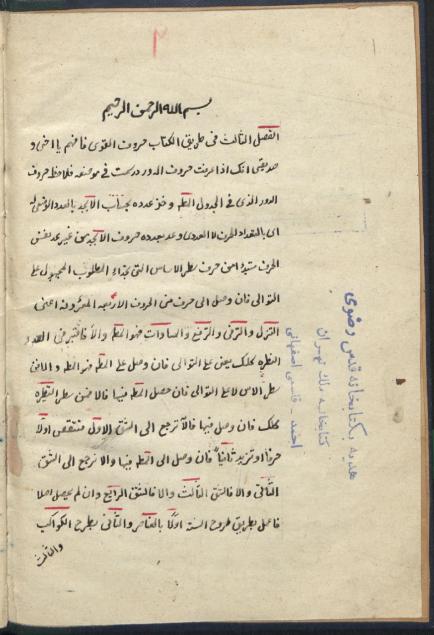 بسم الله الرحمن الرحيم
الفصل الثالث فى طريق الكتاب حروف القوى فافهم يا اخى و
صديقى انك اذا عرفت حروف الدور درست فى موضعه فلاحظ حروف
الدور الذى فى الجدول النظه وخذ عدده بحساب الابجد بالعدد
اى بالمقدار الحرف لا العددى وعد بعدده حروف الابجد من غير عد نفس
الحرف مبتديا من حرف سطر الاساس التى بحذاء المطلوب المجهول على
التوالى فان وصل الى حرف من الحروف الاربعه المعروفة اعنى
التنزل والترقى والترفع والمساوات فهو المط والا فانظر من العدد و
النظيره كذلك بعض على التوالى فان وصل على المط فهو المط والا فمن
سطر الاس لا على التوالى فان حصل المط فيها فالا فمن سطر النظيره
كذلك فان وصل فيها فالا ترجع الى الشق الاول منتقص اولا
حرفا او تزيد ثانيا فان وصل الى المط فيها والا نرجع الى الشق
الثانى والا فالشق الثالث والا فالشق الرابع وان لم يحصل اصلا
فاعمل بطريق طروح السته اولا بالعناصر والثانى بطرح الكواكب
والثالث
هديه بكتابخانه قدس رضوى
كتابخانه ملك تهران
احمد - قدسى اصفهانى